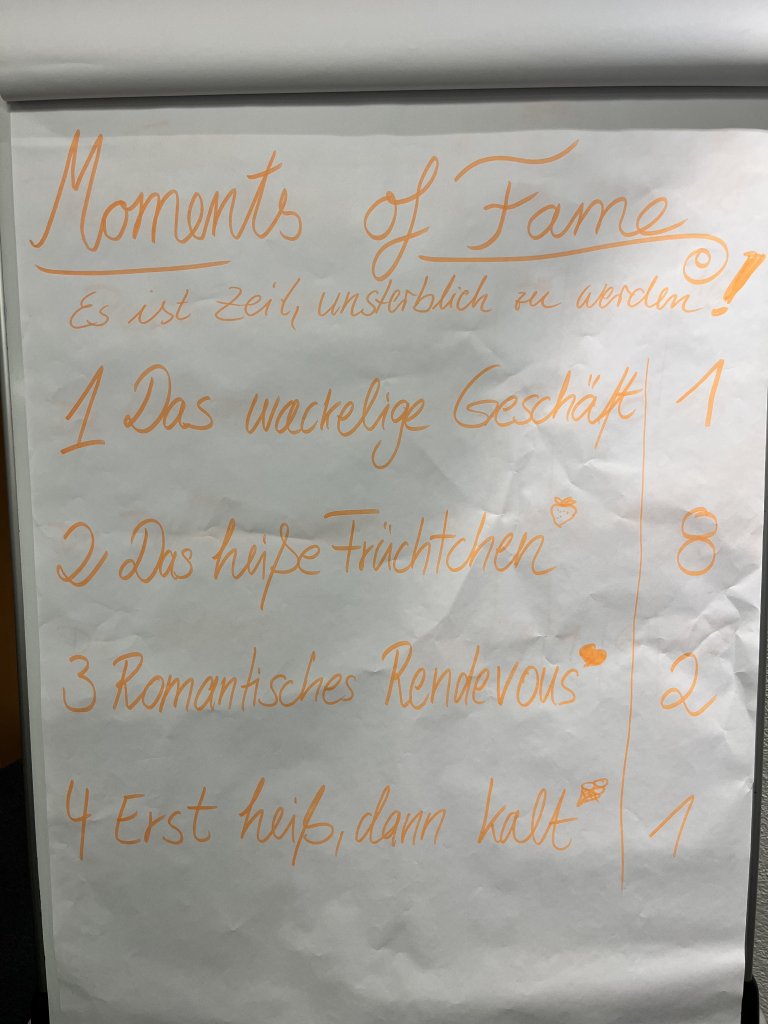 Moments of Fame
Es ist Zeit, unsterblich zu werden!
1 Das wackelige Geschäft 1
2 Das heiße Früchtchen 8
3 Romantisches Rendevous 2
4 Erst heiß, dann kalt 1